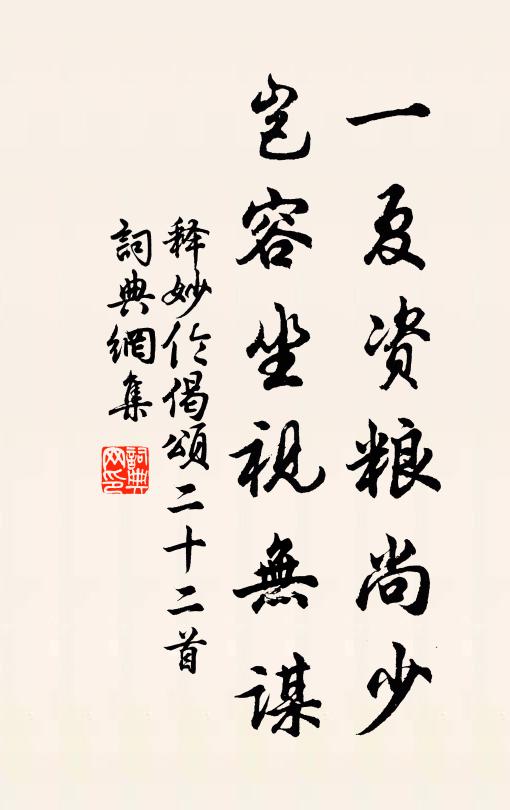 一夏资粮尚少
岂容坐视無谋
释妙伦偈颂二十二首
詞典網集
詞典网印